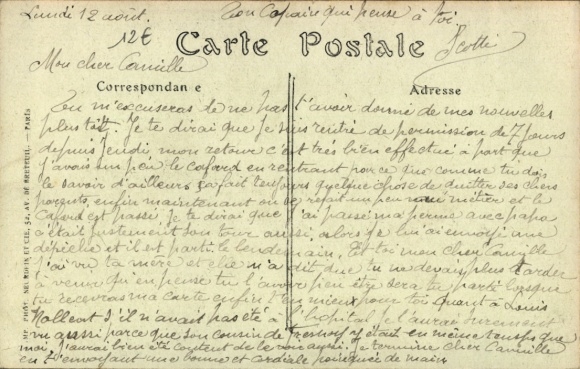 Lundi 12 août. Ton Copain qui pense à toi
12€ Scotti
Carte Postale
Mon cher Camille
Correspondance
Adresse
Tu m'excuseras de ne pas t'avoir donné de mes nouvelles
plus tôt. Je te dirai que je suis rentré de permission de 7 jours
depuis Jeudi, mon retour c'est très bien effectué à part que
j'avais un peu le cafard en rentrant parce que comme tu dois
le savoir d'ailleurs ça fait toujours quelque chose de quitter ses chers
parents, enfin maintenant on refait un peu métier et le
Cafard est passé. Je te dirai que j'ai passé ma perme avec papa
c'était justement son tour aussi, alors je lui ai envoyé une
dépêche et il est parti le lendemain. Et toi mon cher Camille
j'ai vu ta mère et elle m'a dit que tu ne devais plus tarder
à venir qu'en pense tu l'avoir peu être sera tu parti lorsque
tu recevras ma carte enfin tant mieux pour toi quant à Louis
s'il n'avait pas été à l'hopital je l'aurai surement
vu aussi parce que son cousin de était en même temps que
moi, j'aurai bien été content de le voir aussi. Je termine cher Camille
en t'envoyant une bonne et cordiale poignée de main
IMP. PHOT. NEURDEIN ET CIE, 52, AV. DE BRETEUIL. - PARIS